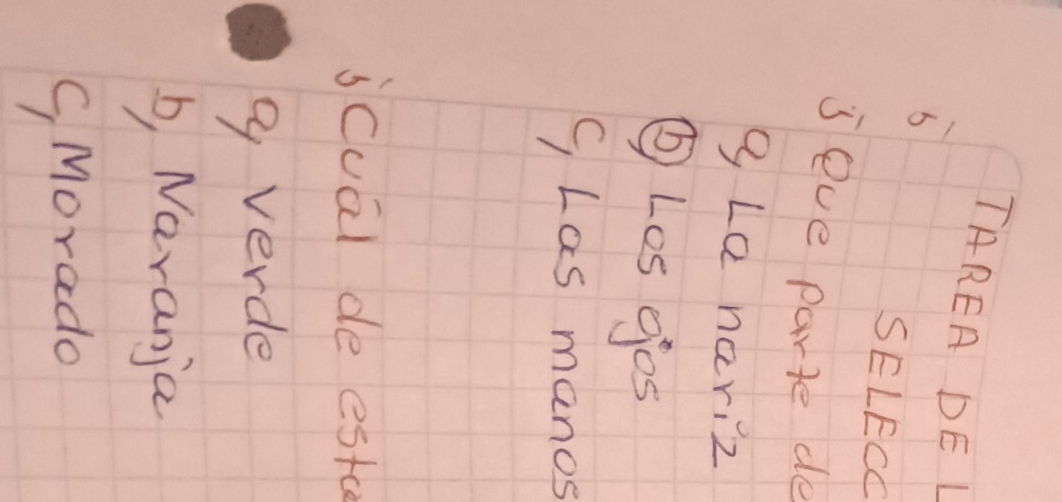 TAREA DE L
SELECC
¿Que parte de
a, La nariz
b, Los ojos
c, Las manos
¿Cuál de esta
a, Verde
b, Naranja
c, Morado